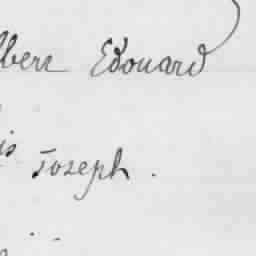 lbert Edouard
is Joseph .